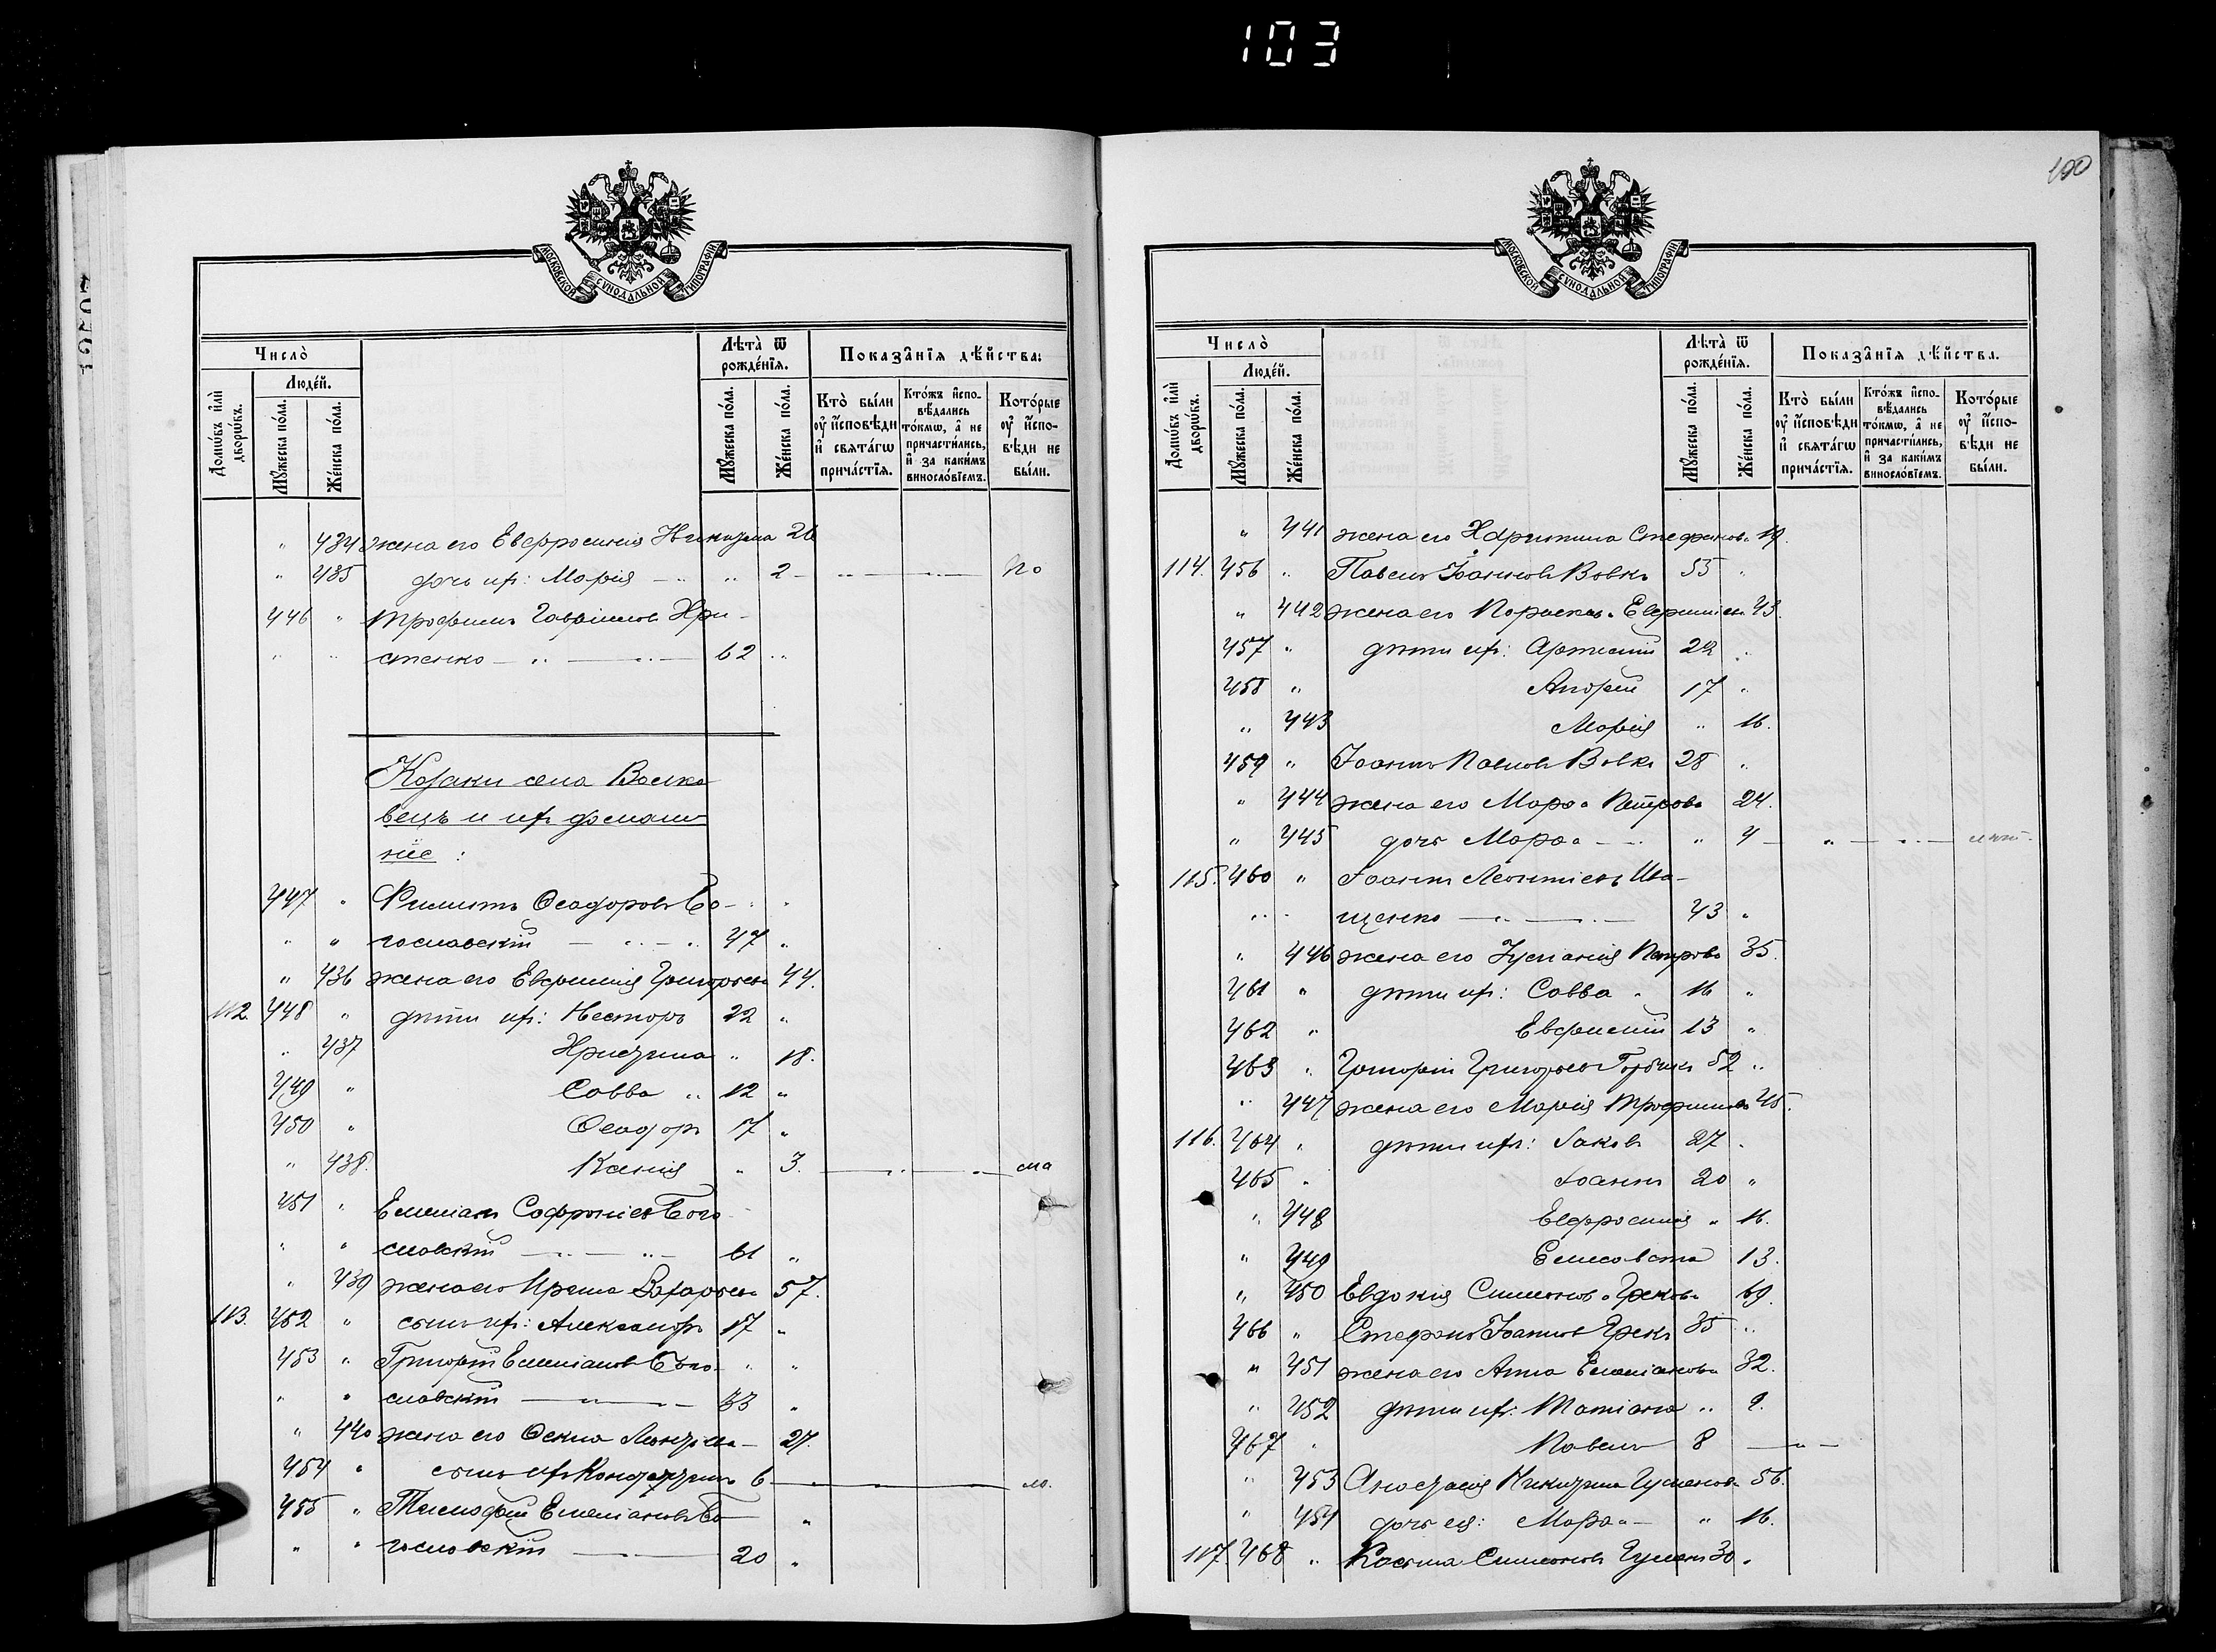 103
МОСКОВСКОЙ СѴНОДАЛЬНОЙ ТИПОГРАФІИ
Число̀
Людей.
Домѡвъ и҆лѝ дворѡвъ.
Мꙋжеска по́ла.
Же́нска по́ла.
Лѣта̀ ѿ рожде́нїѧ.
Мꙋжеска по́ла.
Же́нска по́ла.
Показа̑нїѧ дѣ́йства:
Кто̀ бы́ли ᲂу҆ и҆сповѣди и҆ свѧта́гѡ прича́стїѧ.
Кто́жъ и҆спо-вѣ́дались то́кмѡ, а҆ не причасти́лись, и҆ за каки́мъ винословїемъ.
Кото́рые ᲂу҆ и҆спо-вѣди не бы́ли.
" 434 жена его Евфросинія Никитина 26
" 435 дочь ихъ: Марія " 2 " по
446 " Трофимъ Гавріиловъ Хри-
" " стенко 62 "
Козаки села Волко
вецъ и ихъ домаш
ніе:
447 " Филиппъ Ѳеодоровъ Бо-
" " гославскій 47 "
" 436 жена его Евфимія Григорьева 44.
112. 448 " дѣти ихъ: Несторъ 22 "
" 437 Христина " 18.
449 " Савва " 12 "
450 " Ѳеодоръ 17 "
" 438. Ксенія " 3. " " ма
451 " Емиліанъ Софроніевъ Бого
" " славскій 61 "
" 439 жена его Ирина Захарьева 57.
113. 452 " сынъ ихъ: Александръ 17 "
453 " Григорій Емиліановъ Бого- " "
" " славскій 33 "
" 440 жена его Ѳекла 27.
454 " сынъ ихъ 6 " ло.
455 " Тимоѳей Емиліановъ Бо "
" " гославскій 20 "
100
МОСКОВСКОЙ СѴНОДАЛЬНОЙ ТИПОГРАФІИ
Число̀
Людей.
Домѡвъ и҆лѝ дворѡвъ.
Мꙋжеска по́ла.
Же́нска по́ла.
Лѣта̀ ѿ рожде́нїѧ.
Мꙋжеска по́ла.
Же́нска по́ла.
Показа̑нїѧ дѣ́йства.
Кто̀ бы́ли ᲂу҆ и҆сповѣди и҆ свѧта́гѡ прича́стїѧ.
Кто́жъ и҆спо-вѣ́дались то́кмѡ, а҆ не причасти́лись, и҆ за каки́мъ винословїемъ.
Кото́рые ᲂу҆ и҆спо-вѣди не бы́ли.
" 441 жена его Харитина Стефанов. 19.
114. 456 " Павелъ Іоанновъ Вовкъ 55 "
" 442 жена его Параскева Евфиміева 43.
457 " дѣти ихъ: Артемій 22 "
458 " Андрей 17 "
" 443 Марія " 16.
459 " Іоаннъ Павловъ Вовкъ 28 "
" 444 жена его Марѳа Петрова 24.
" 445 дочь Марѳа " 4 " " лѣт.
115. 460 " Іоаннъ Леонтіевъ Ива-
" " щенко 43 "
" 446 жена его Іуліанія Петрова 35.
461 " дѣти ихъ: Савва " 16 "
462 " Евфимій 13 "
463 " Григорій Григорьевъ 52 "
" 447 жена его Марія Трофимова 45.
116. 464 " дѣти ихъ: Іаковъ 27 "
465 " Іоаннъ 20 "
" 448 Евфросинія " 16.
" 449 Елисавета 13.
" 450 Евдокія Симонова Грекова 69.
466 " Стефанъ Іоанновъ Грекъ 35 "
" 451 жена его Анна Емиліанова 32.
" 452 дѣти ихъ: Татіана " 9.
467 " Павелъ 8 "
" 453 Анастасія Никитина Гуменюк. 56.
" 454 дочь ея: Марѳа " 16.
117. 468 " Косьма Симоновъ 30 "